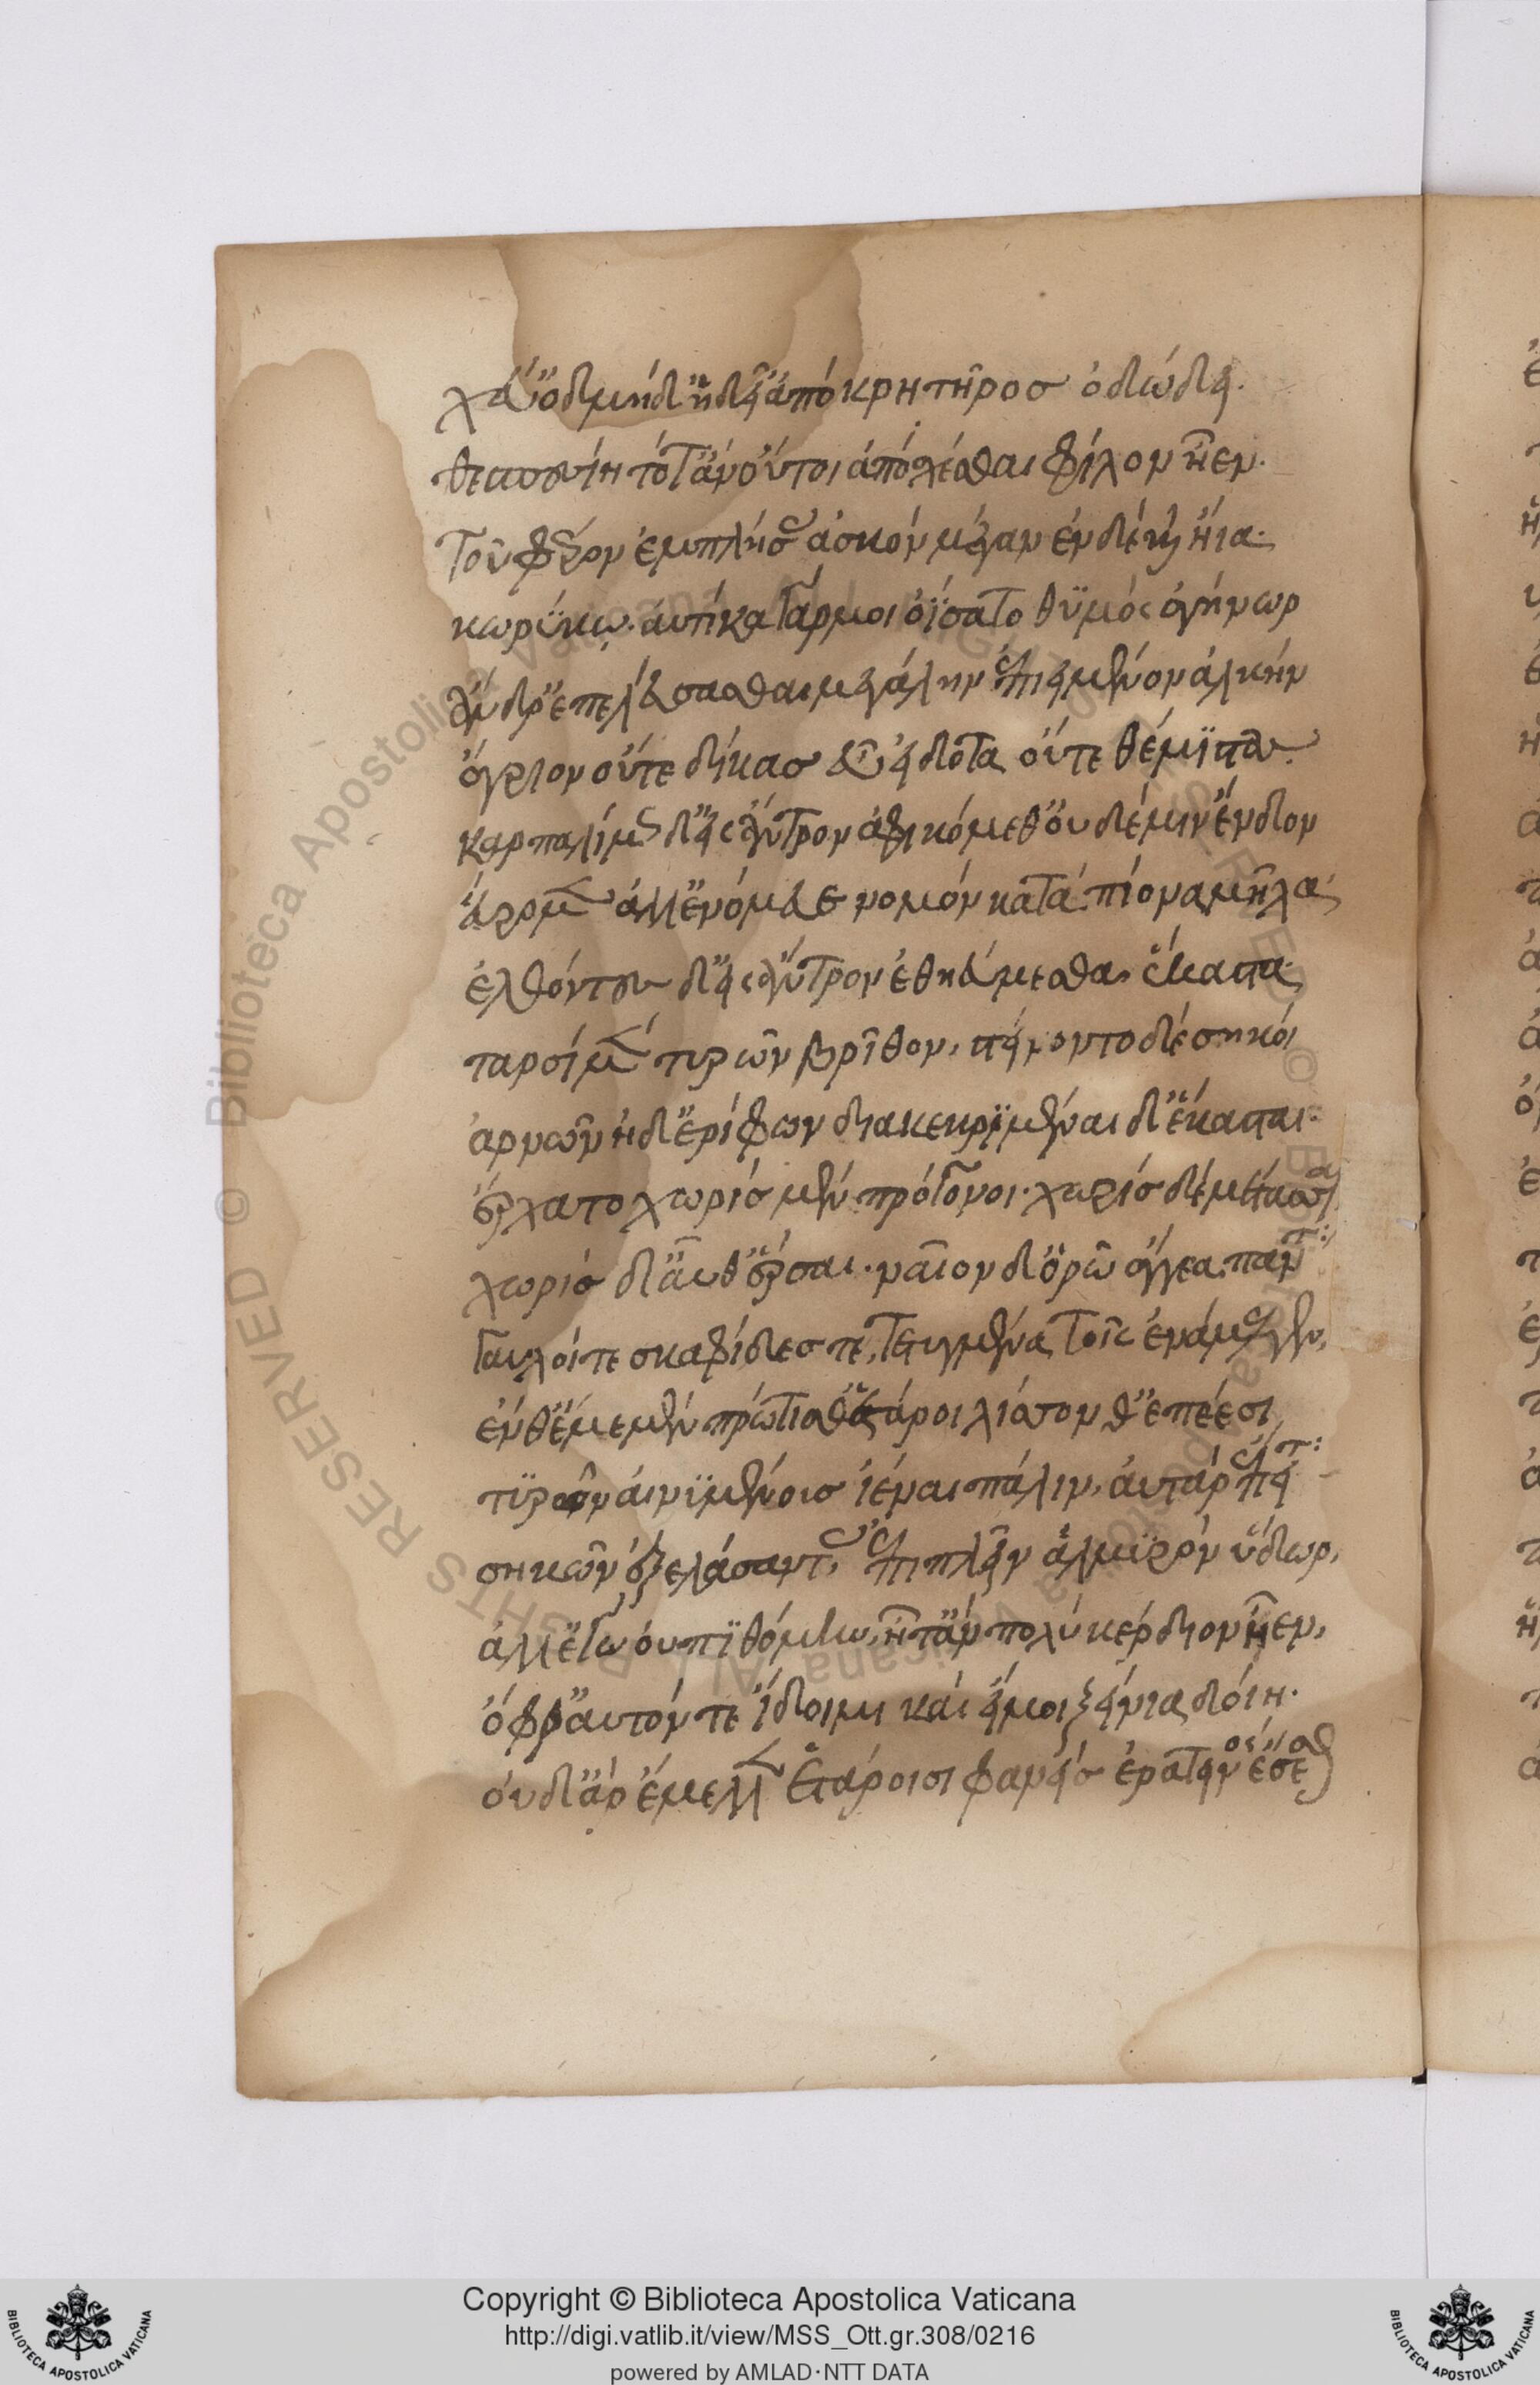 χεῦ ὀδμὴ δ' ἡδεῖα ἀπὸ κρητῆρος ὀδώδει.
θεσπεσίη τότ' ἂν οὔτοι ἀποσχέσθαι φίλον ἦεν.
τοῦ φέρον ἐμπλήσας ἀσκὸν μέγαν ἐν δὲ καὶ ἤια.
κωρύκω. αὐτίκα γάρ μοι ὀΐσατο θϋμὸς ἀγήνωρ
ἄνδρ' ἐπελεύσασθαι μεγάλην ἐπιειμένον ἀλκὴν
ἄγριον οὔτε δίκας εὖ εἰδότα οὔτε θέμϊστας.
καρπαλίμως δ' εἰς ἄντρον ἀφικόμεθ' οὐδέ μιν ἔνδον
εὕρομεν ἀλλ' ἐνόμευε νομὸν κατὰ πίονα μῆλα.
ἐλθόντες δ' εἰς ἄντρον ἐθηεύμεσθα ἕκαστα.
ταρσοὶ μὲν τυρῶν βρῖθον, στείνοντο δὲ σηκοὶ
ἀρνῶν ἠδ' ἐρίφων διακεκρϊμέναι δ' ἕκασται.
ἔρχατο χωρὶς μὲν πρόγονοι. χωρὶς δὲ μέτασσαι
χωρὶς δ' αὖθ' ἕρσαι. ναῖον δ' ὀρῶ ἄγγεα πάντα
γαυλοί τε σκαφίδες τε, τετυγμένα τοῖς ἐνάμελγεν,
ἔνθ' ἐμὲ μὲν πρώτισθ' ἕταροι λίσσονθ' ἐπέεσι
τϋρῶν αἰνϋμένους ἰέναι πάλιν, αὐτὰρ ἔπειτα
σηκῶν ἐξελάσαντας ἐπιπλεῖν ἁλμϋρὸν ὕδωρ,
ἀλλ' ἐγὼ οὐ πϊθόμην, ἦ τ' ἂν πολὺ κέρδιον ἦεν,
ὄφρ' αὐτόν τε ἴδοιμι καὶ εἴ μοι ξείνια δοίη.
οὐδ' ἄρ' ἔμελλεν ἑτάροισι φανεὶς ἐρατεινὸς ἔσεσθαι
Copyright © Biblioteca Apostolica Vaticana
http://digi.vatlib.it/view/MSS_Ott.gr.308/0216
powered by AMLAD·NTT DATA